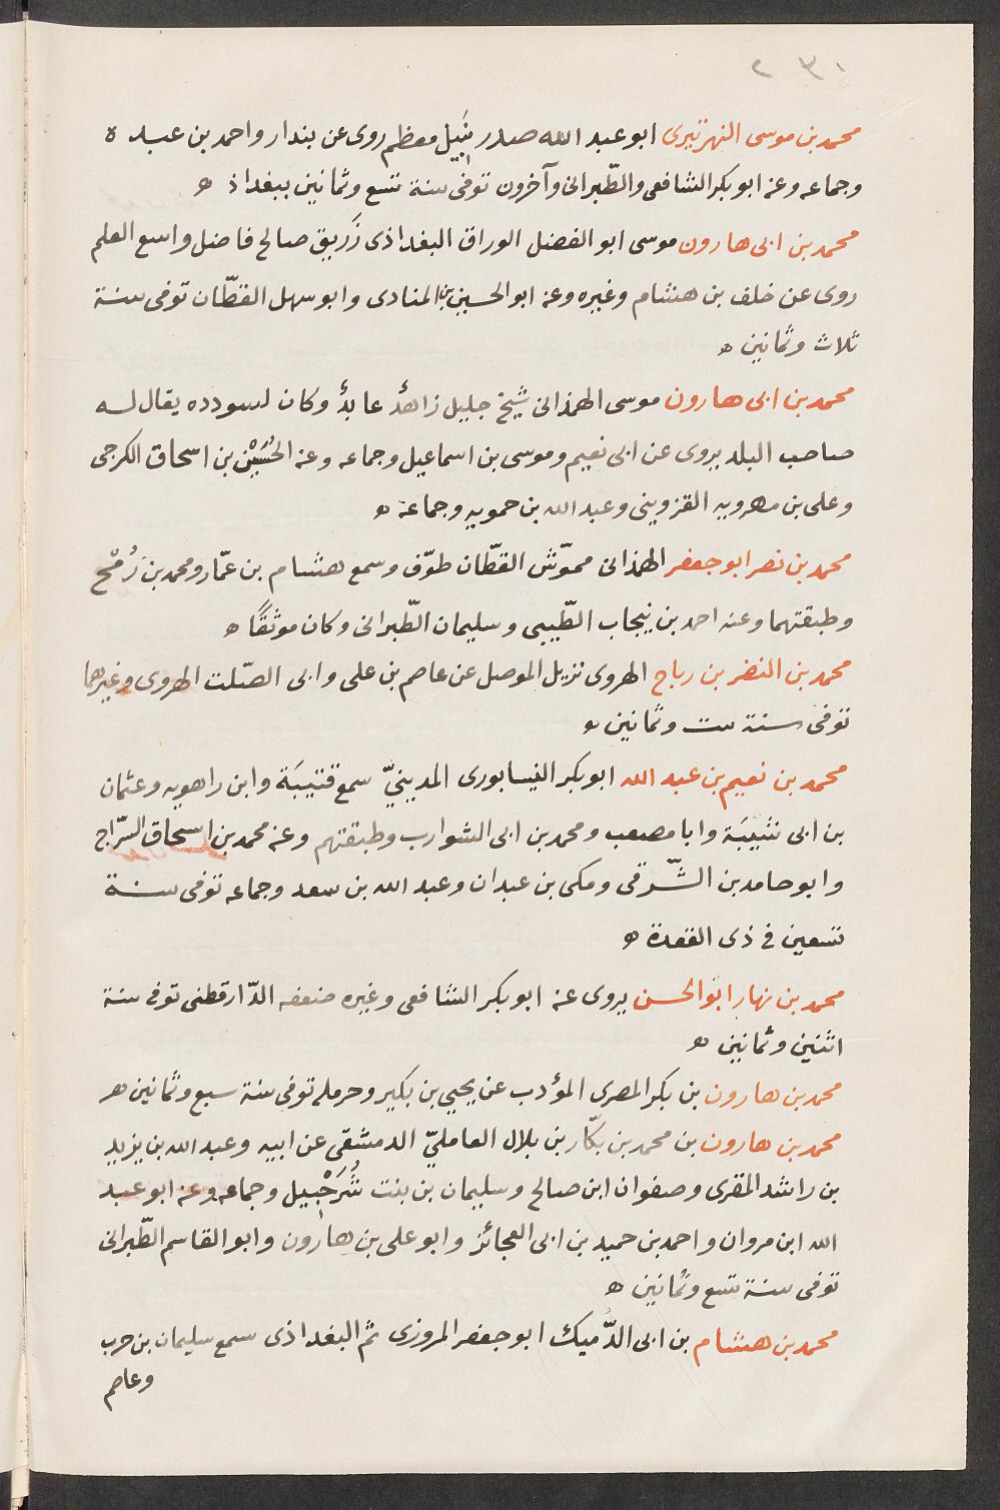 محمد بن موسى النهرتيرى ابو عبد الله صدر نبيل معظم روى عن بندار واحمد بن عبده
وجماعه وعنه ابو بكر الشافعى والطّبرانى وآخرون توفى سنة تسع وثمانين ببغداذ ه
محمد بن ابى هارون موسى ابو الفضل الوراق البغداذى زَريق صالح فاضل واسع العلم
روى عن خلف بن هشام وغيره وعنه ابو الحسين بن المنادى وابو سهل القطّان توفى سنة
ثلاث وثمانين ه
محمد بن ابى هارون موسى الهمذانى شيخ جليل زاهدٌ عابدٌ وكان لسودده يقال له
صاحب البلد يروى عن ابى نعيم وموسى بن اسماعيل وجماعه وعنه الحُسَيْن بن اسحاق الكرجى
وعلى بن مهرويه القزوينى وعبد الله بن حمويه وجماعة ه
محمد بن نصر ابو جعفر الهمذانى مموّش القطّان طوّف وسمع هشام بن عمّار ومحمد بن رُمْح
وطبقتهما وعنه احمد بن نيجاب الطّيبى وسليمان الطّبرانى وكان موثقًا ه
محمد بن النضر بن رباح الهروى نزيل الموصل عن عاصم بن على وابى الصّلت الهروى وغيرهما
توفى سنة ست وثمانين ه
محمد بن نعيم بن عبد الله ابو بكر النيسابورى المدينيّ سمع قتيبَة وابن راهويه وعثمان
بن ابى شيبَة وابا مصعب ومحمد بن ابى الشوارب وطبقتهم وعنه محمد بن اسحاق السّراج
وابو حامد بن الشّرقى ومكى بن عبدان وعبد الله بن سعد وجماعه توفى سنة
تسعين فى ذى القعدة ه
محمد بن نهار ابو الحسن يروى عنه ابو بكر الشافعى وغيره ضعفه الدّارقطنى توفى سنة
اثنين وثمانين ه
محمد بن هارون بن بكر المصرى المؤدب عن يحيى بن بكير وحرمله توفى سنة سبع وثمانين ه
محمد بن هارون بن محمد بن بكّار بن بلال العامليّ الدمشقى عن ابيه وعبد الله بن يزيد
بن راشد المقرى وصفوان ابن صالح وسليمان بن بنت شُرَحْبيل وجماعه وعنه ابو عبد
الله ابن مروان واحمد بن حميد بن ابى العجائز وابو على بن هارون وابو القاسم الطّبرانى
توفى سنة تسع وثمانين ه
محمد بن هشام بن ابى الدُّميك ابو جعفر المروزى ثم البغداذى سمع سليمان بن حرب
وعاصم